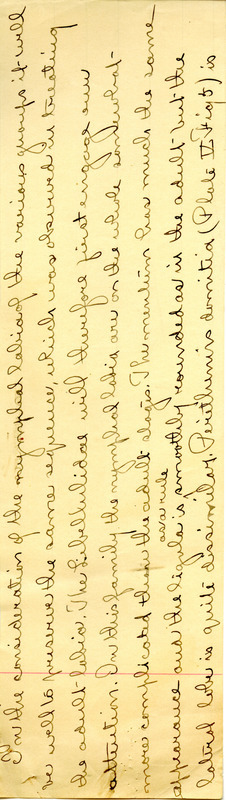 In the consideration of the nymphal labia of the various groups it will
be well to preserve the same sequence, which was observed in treating
the adult labia. The Libellulidae will therefore first engage our
attention. In this family the nymphal labia are on the whole somewhat
more complicated than the adult stage. The mentum has much the same
as a rule
appearance and the ligula is smoothly rounded as in the adult but the
lateral lobe is quite dissimilar. Perithemis domitia (Plate V Fig 5) is